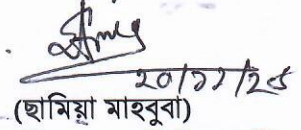 ২০/১১/২৫
(ছামিয়া মাহবুবা)